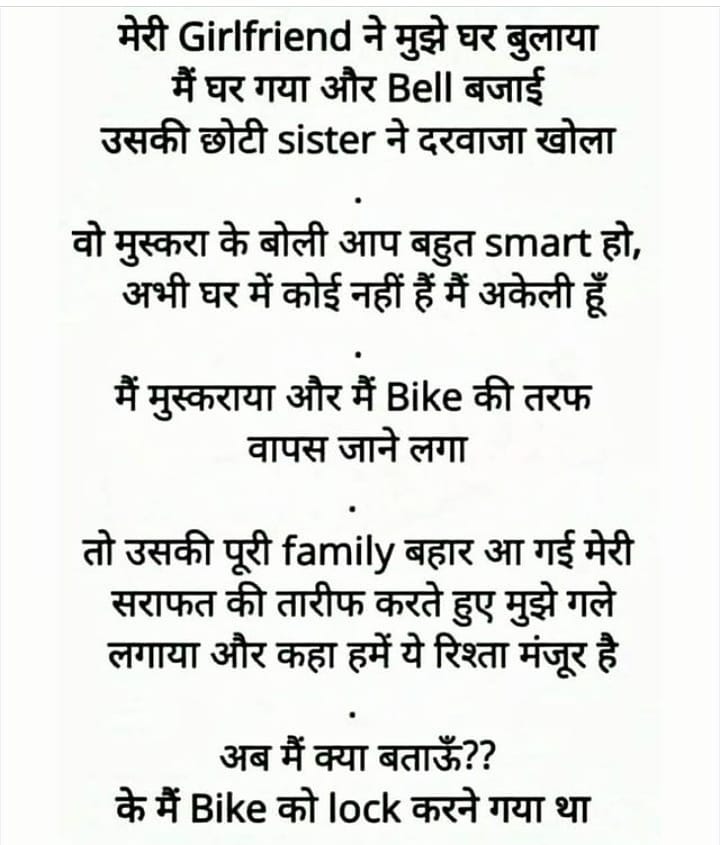 मेरी Girlfriend ने मुझे घर बुलाया
मैं घर गया और Bell बजाई
उसकी छोटी sister ने दरवाजा खोला
.
वो मुस्करा के बोली आप बहुत smart हो,
अभी घर में कोई नहीं हैं मैं अकेली हूँ
.
मैं मुस्कराया और मैं Bike की तरफ
वापस जाने लगा
.
तो उसकी पूरी family बहार आ गई मेरी
सराफत की तारीफ करते हुए मुझे गले
लगाया और कहा हमें ये रिश्ता मंजूर है
.
अब मैं क्या बताऊँ??
के मैं Bike को lock करने गया था